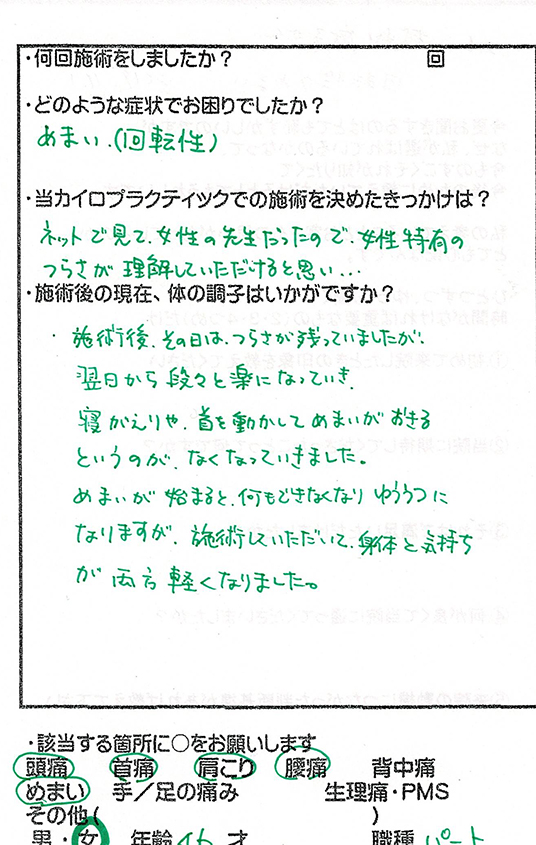 ・何回施術をしましたか？ 回
・どのような症状でお困りでしたか？
めまい.(回転性)
・当カイロプラクティックでの施術を決めたきっかけは？
ネットで見て、女性の先生だったので、女性特有の
つらさが理解していただけると思い…
・施術後の現在、体の調子はいかがですか？
・施術後、その日は、つらさが残っていましたが、
翌日から段々と楽になっていき、
寝がえりや、首を動かしてめまいがおきる
というのが、なくなっていきました。
めまいが始まると、何もできなくなりゆううつに
なりますが、施術していただいて、身体と気持ち
が両方軽くなりました。
・該当する箇所に○をお願いします
頭痛 首痛 肩こり 腰痛 背中痛
めまい 手／足の痛み 生理痛・PMS
その他( )
男・女 年齢 才 職種 パート